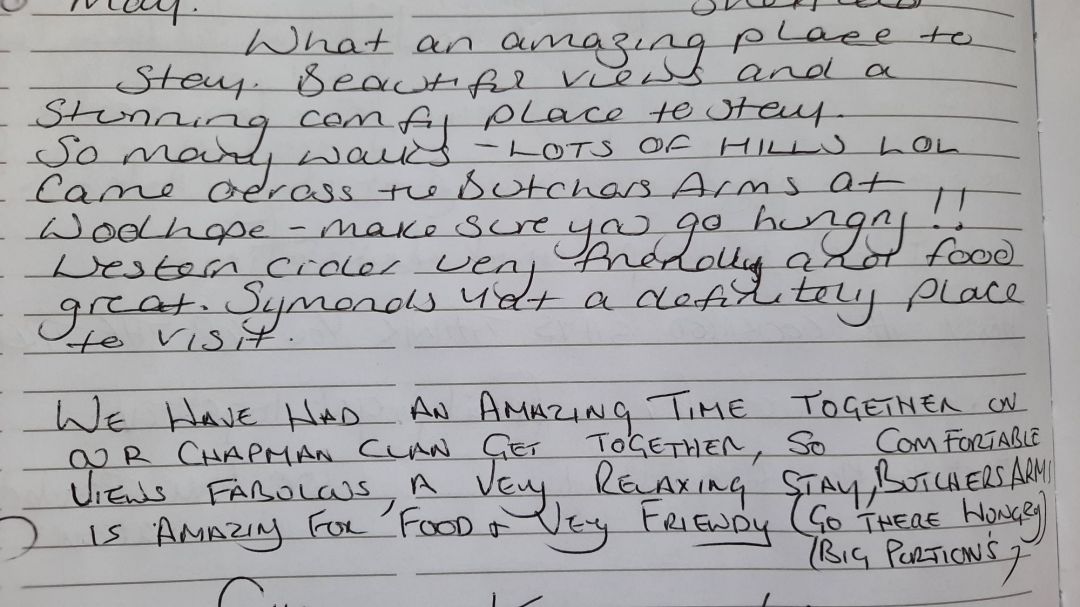 May.
What an amazing place to
Stay. Beautiful views and a
Stunning comfy place to stay.
So many walks - LOTS OF HILLS LOL
Came across the Butchers Arms at
Woolhope - make sure you go hungry !!
Western Cider very friendly and food
great. Symonds Yat a definitely place
to visit.
WE HAVE HAD AN AMAZING TIME TOGETHER ON
OUR CHAPMAN CLAN GET TOGETHER, SO COMFORTABLE
VIEWS FABOLOUS, A VERY RELAXING STAY, BUTCHERS ARMS
IS AMAZING FOR FOOD + VERY FRIENDLY (GO THERE HUNGRY)
(BIG PORTION'S)